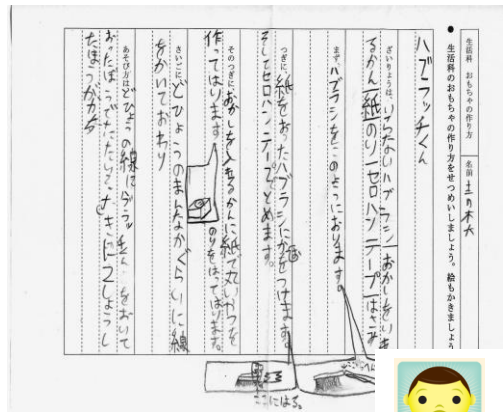 生活科 おもちゃの作り方
名前
● 生活科のおもちゃの作り方をせつめいしましょう。絵もかきましょう
ハブラッチくん
ざいりょうは、いらないハブラシ おかしをいれ
るかん 紙 のり セロハンテープ はさみ
まず、ハブラシをこのようにおります。
つぎに 紙をおったハブラシにかおをつけます。
そしてセロハンテープでとめます。
そのつぎに、おかしを入るかんに紙で丸いやつを
作ってはります。
のりをはってはります。
さいごに、どひょうのまんなかぐらいに線
をかいておわり
あそび方は どひょうの線に
をおいて
ここにはる。